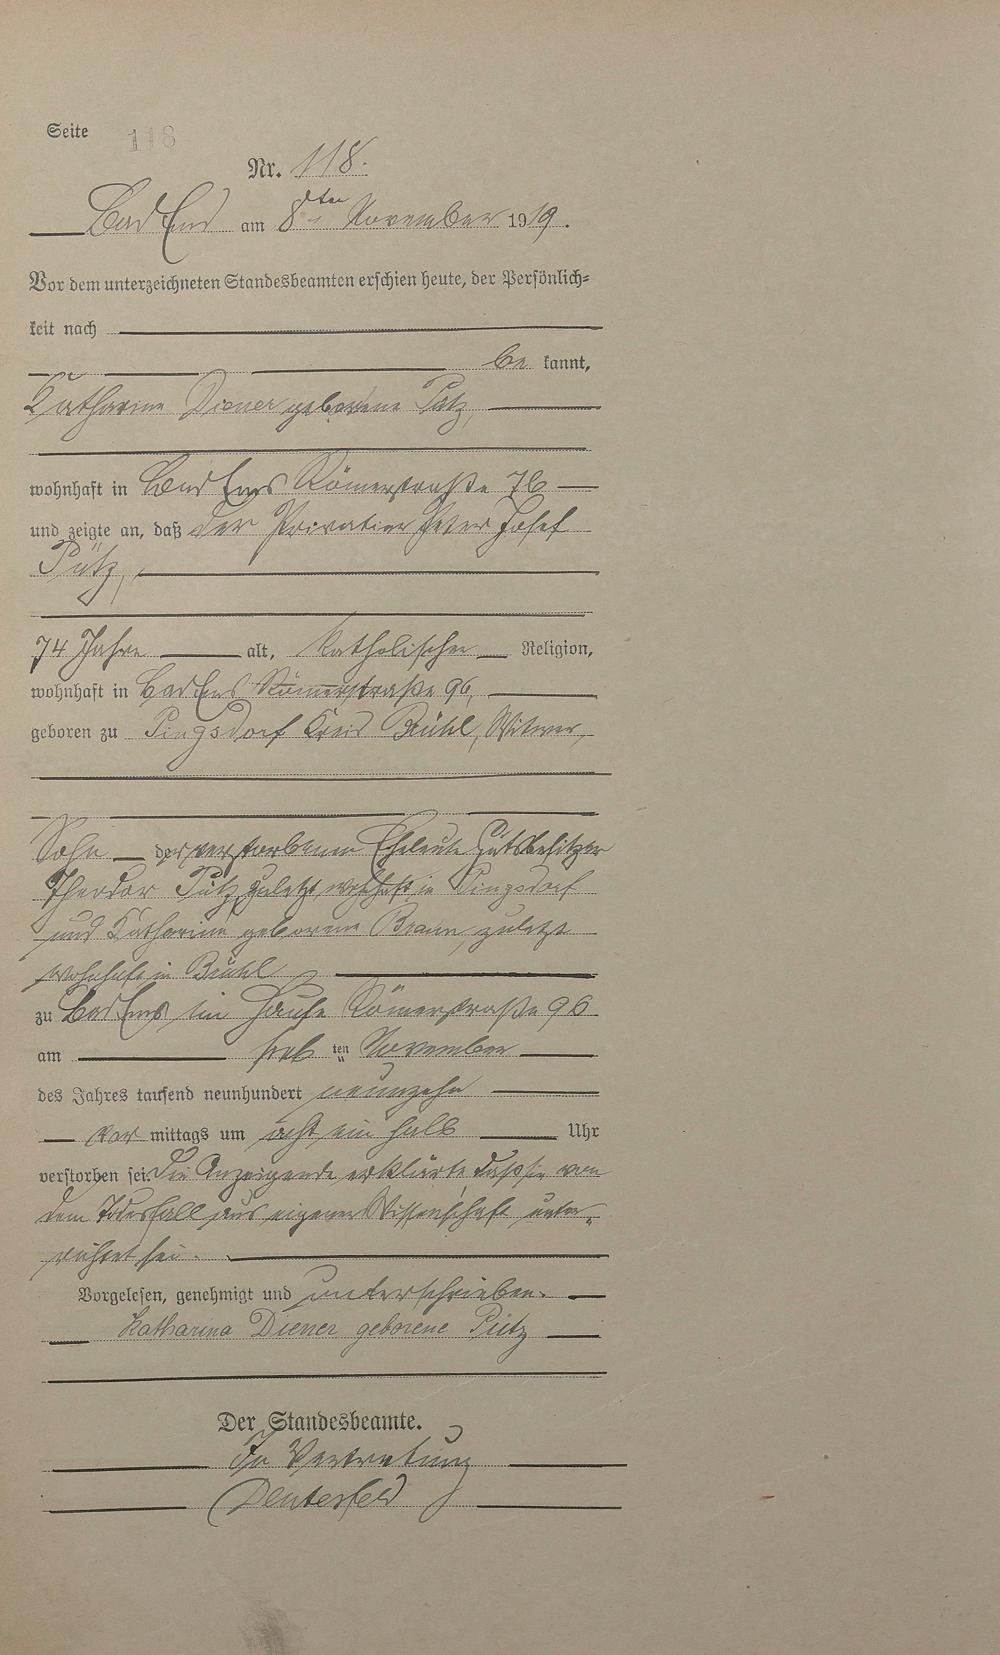 Seite 118
Nr. 118.
Bad Ems am 8ten November 1919.
Vor dem unterzeichneten Standesbeamten erschien heute, der Persönlich-
keit nach
be kannt,
Katharina Diener geborene Pütz,
wohnhaft in Bad Ems Römerstraße 76
und zeigte an, daß der Privatier Peter Josef
Pütz,
74 Jahre alt, katholischer Religion,
wohnhaft in Bad Ems Römerstraße 96,
geboren zu Pingsdorf Kreis Brühl, Witwer,
Sohn der verstorbenen Eheleute Gutsbesitzer
Theodor Pütz, zuletzt wohnhaft in Pingsdorf
und Katharina geborene Braun, zuletzt
wohnhaft in Brühl
zu Bad Ems im Hause Römerstraße 96
am ten November
des Jahres tausend neunhundert neunzehn
vor mittags um acht ein halb Uhr
verstorben sei. Die Anzeigende erklärte daß sie von
dem Todesfall aus eigener Wissenschaft unter-
richtet sei.
Vorgelesen, genehmigt und unterschrieben.
Katharina Diener geborene Pütz
Der Standesbeamte.
In Vertretung